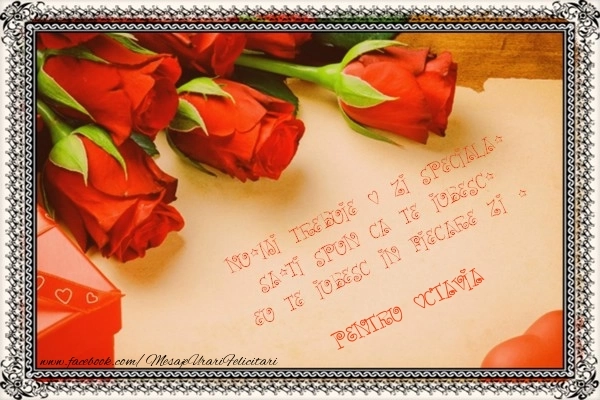 NU-MI TREBUIE O ZI SPECIALA
SA-TI SPUN CA TE IUBESC
EU TE IUBESC IN FIECARE ZI
PENTRU OCTAVIA
www.facebook.com/MesajeUrariFelicitari